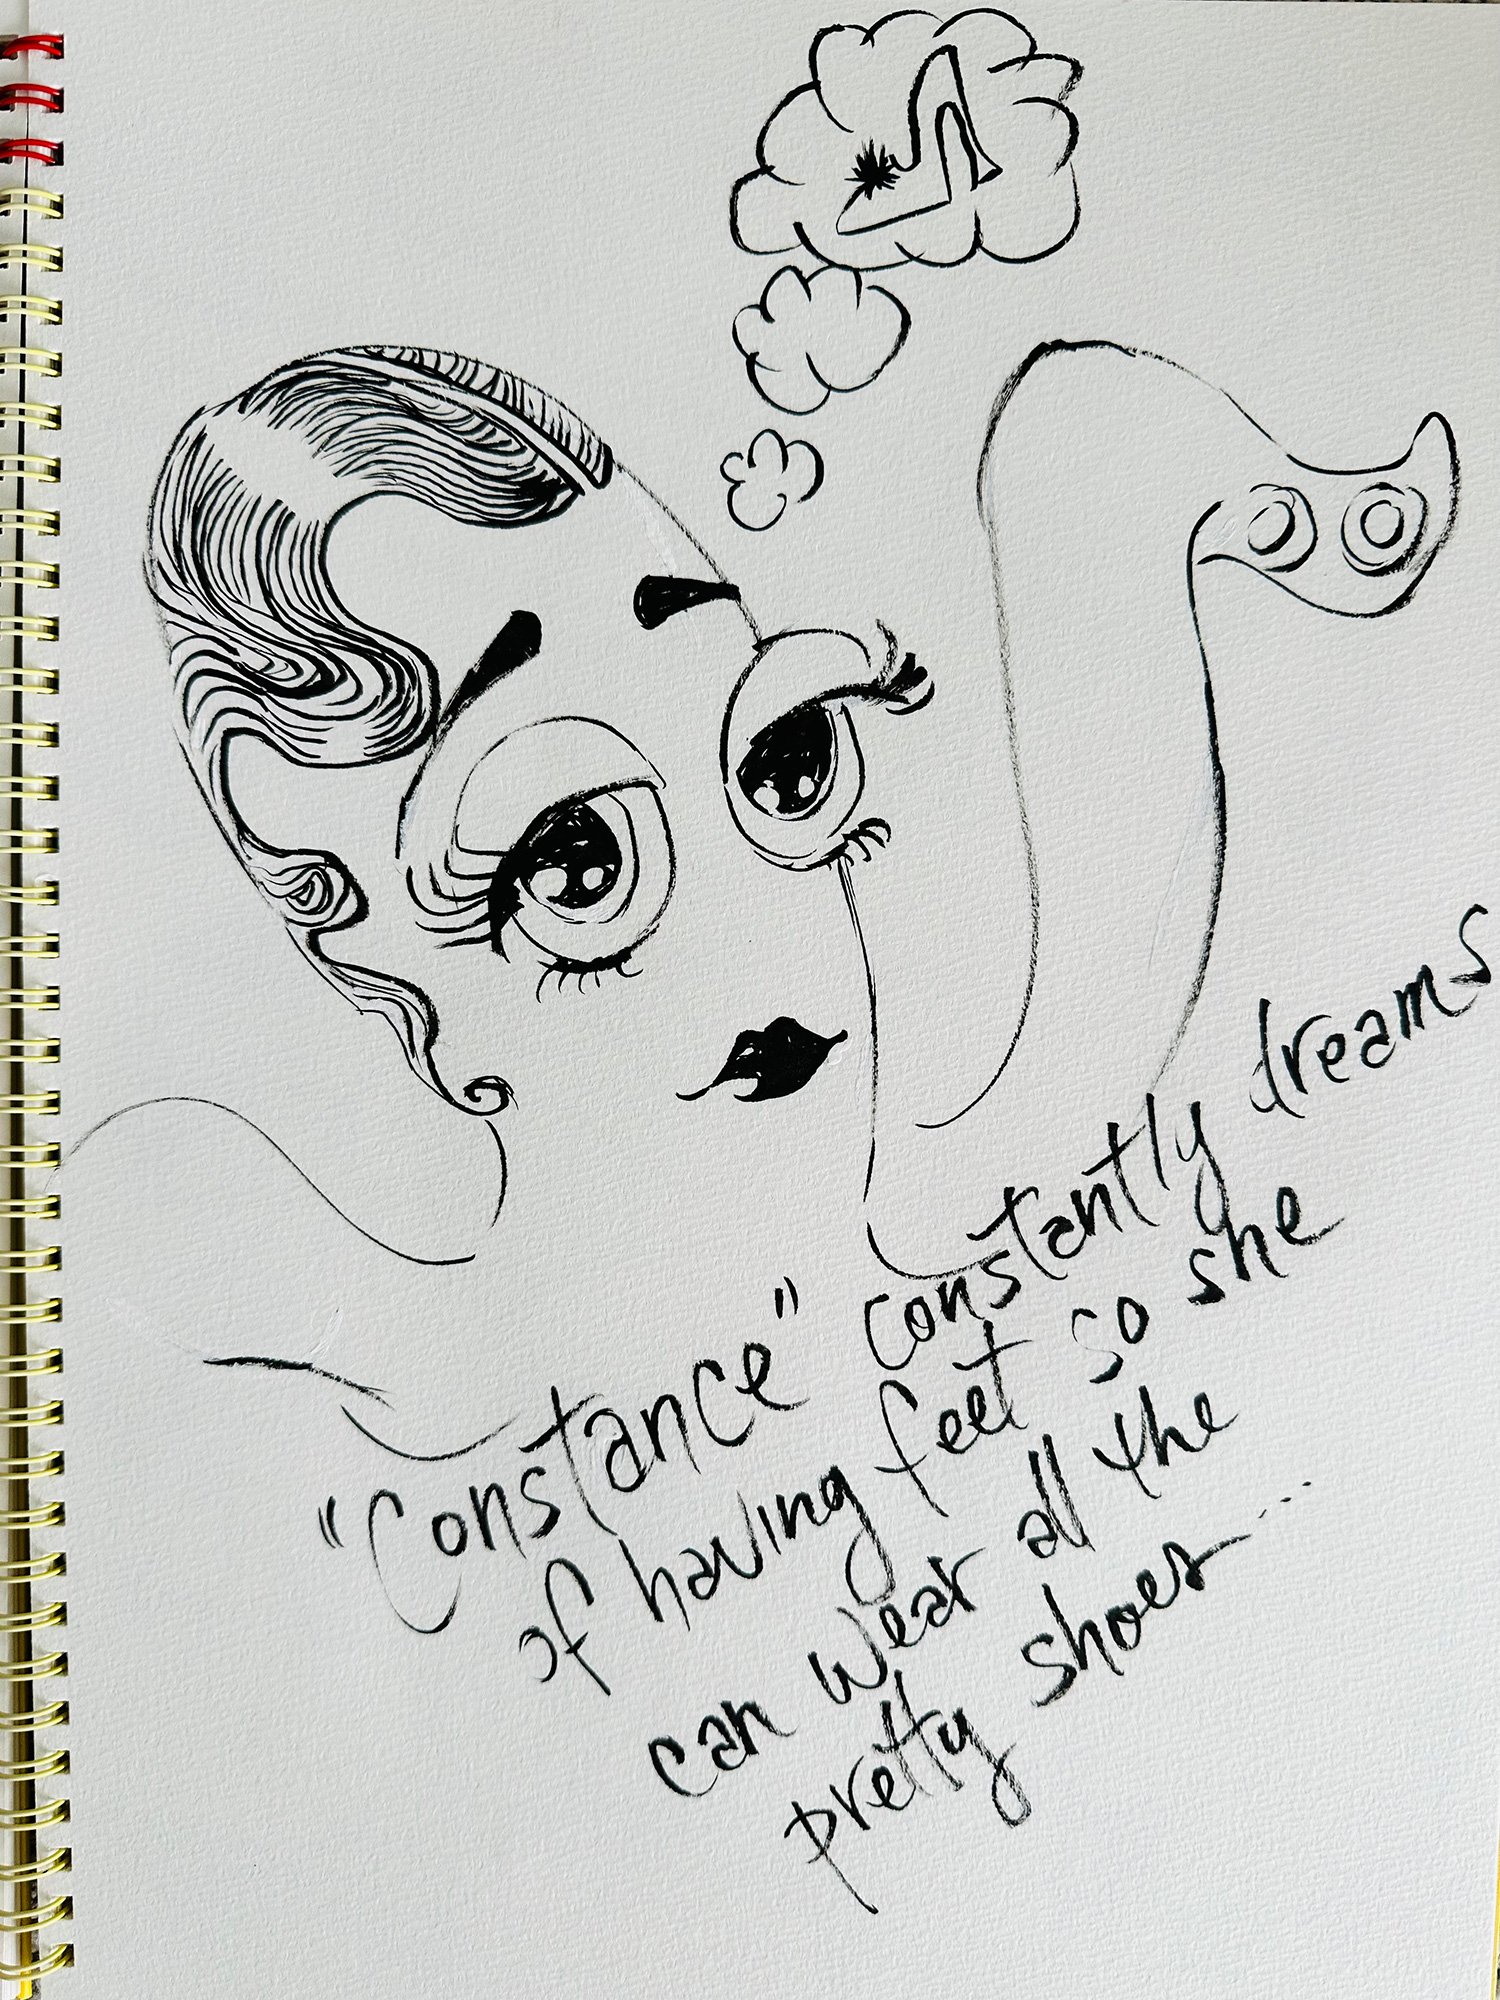 "Constance" constantly dreams
of having feet so she
can wear all the
pretty shoes...